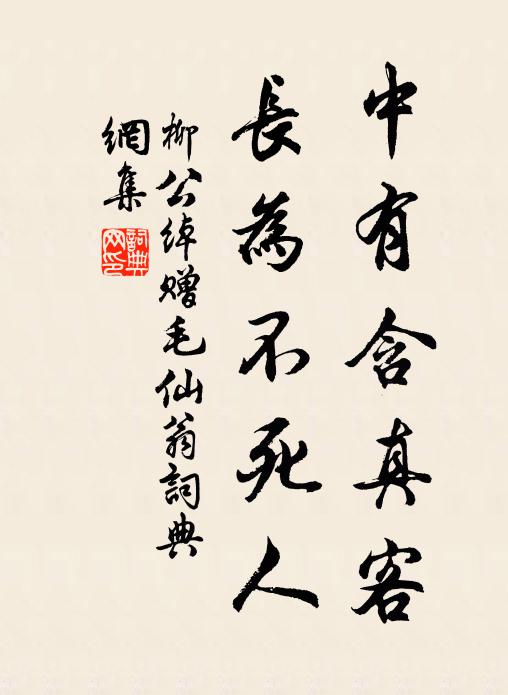 中有含真客
長為不死人
柳公綽贈毛仙翁詞典
網集
詞典網印